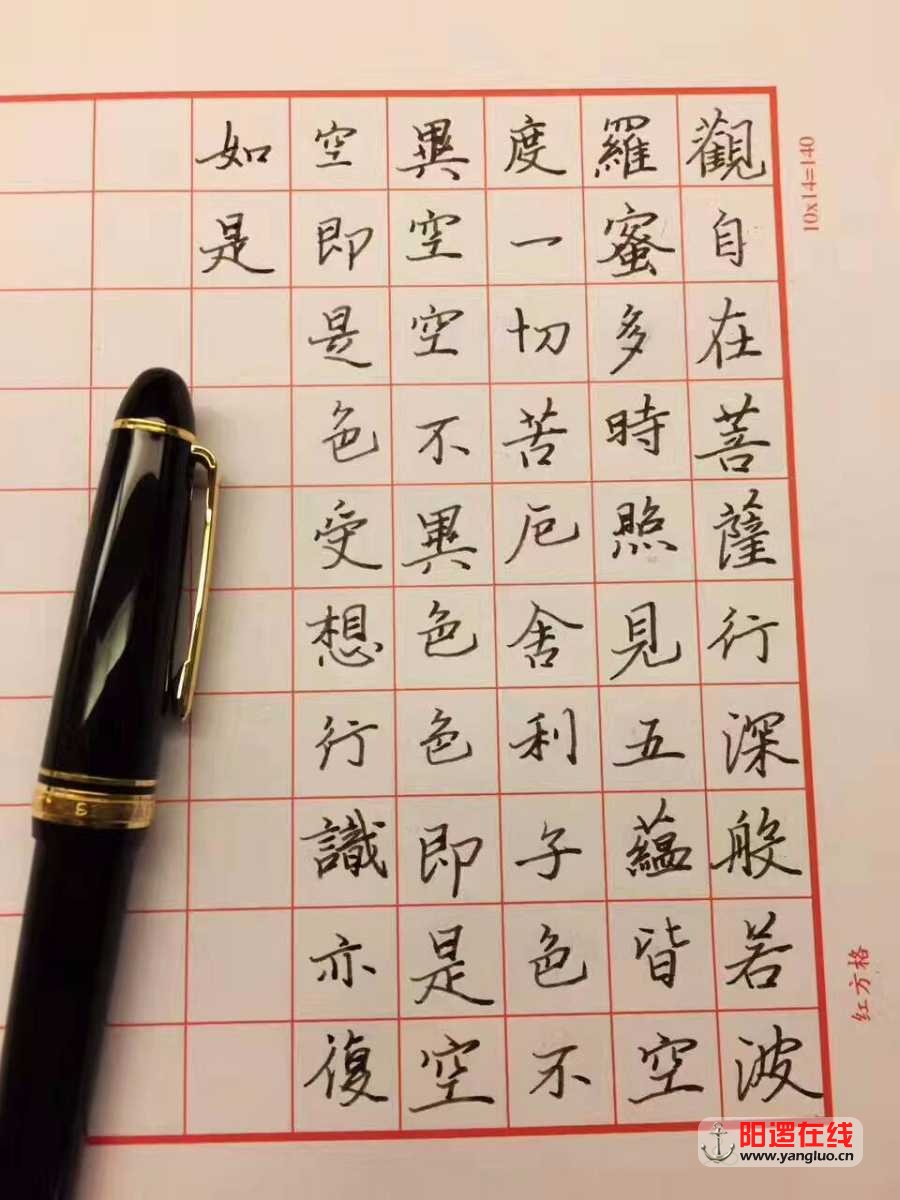 觀自在菩薩行深般若波
羅蜜多時照見五蘊皆空
度一切苦厄舍利子色不
異空空不異色色即是空
空即是色受想行識亦復
如是
10x14=140
红方格
阳逻在线
www.yangluo.cn